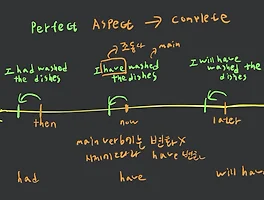 Perfect Aspect → complete
조동사
main
I had washed
the dishes
I have washed
the dishes
I will have
washed the
dishes
then
now
later
main verb에는 변화 X
시제에 따라 have 변화
had
have
will have